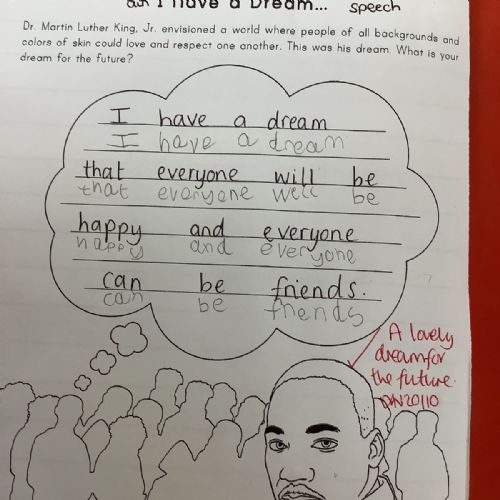 I Have a Dream... speech
Dr. Martin Luther King, Jr. envisioned a world where people of all backgrounds and
colors of skin could love and respect one another. This was his dream. What is your
dream for the future?
I have a dream
I have a dream
that everyone will be
that everyone well be
happy and everyone
happy and everyone
can be friends.
can be friends
A lovely
dream for
the future.